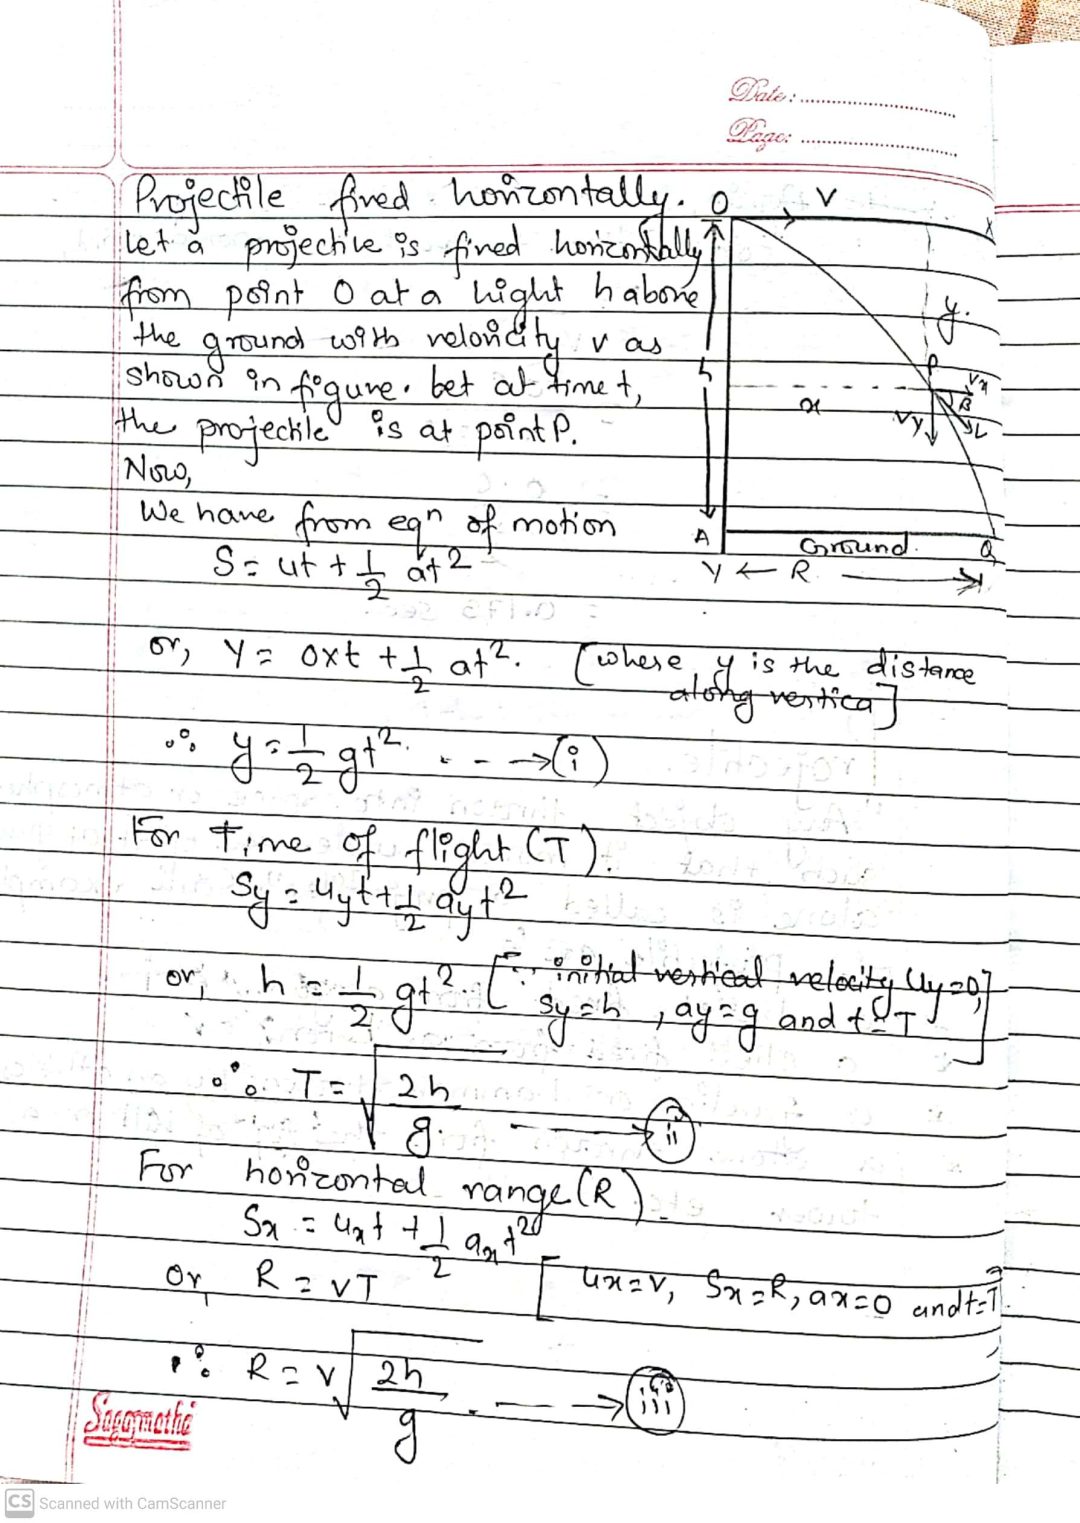 Date: ....................
Page: ....................
Projectile fired horizontally.
Let a projectile is fired horizontally
from point O at a hight h above
the ground with velocity v as
shown in figure. Let at time t,
the projectile is at point P.
Now,
We have from eqn of motion
S = ut + 1/2 at²
O V X
y.
P
h
x
Vx
β
Vy
A Ground. Q
Y ← R →
or, y = 0xt + 1/2 at². [where y is the distance
along vertica]
∴ y = 1/2 gt². - - → (i)
For Time of flight (T).
Sy = uyt + 1/2 ayt²
or, h = 1/2 gt². [∵ initial vertical velocity Uy=0,
Sy=h, ay=g and t=T]
∴ T = √2h/g. → (ii)
For horizontal range (R).
Sx = uxt + 1/2 axt²
Or, R = vT [ux=v, Sx=R, ax=0 and t=T].
∴ R = v√2h/g . - → (iii)
Sagarmatha
CS Scanned with CamScanner